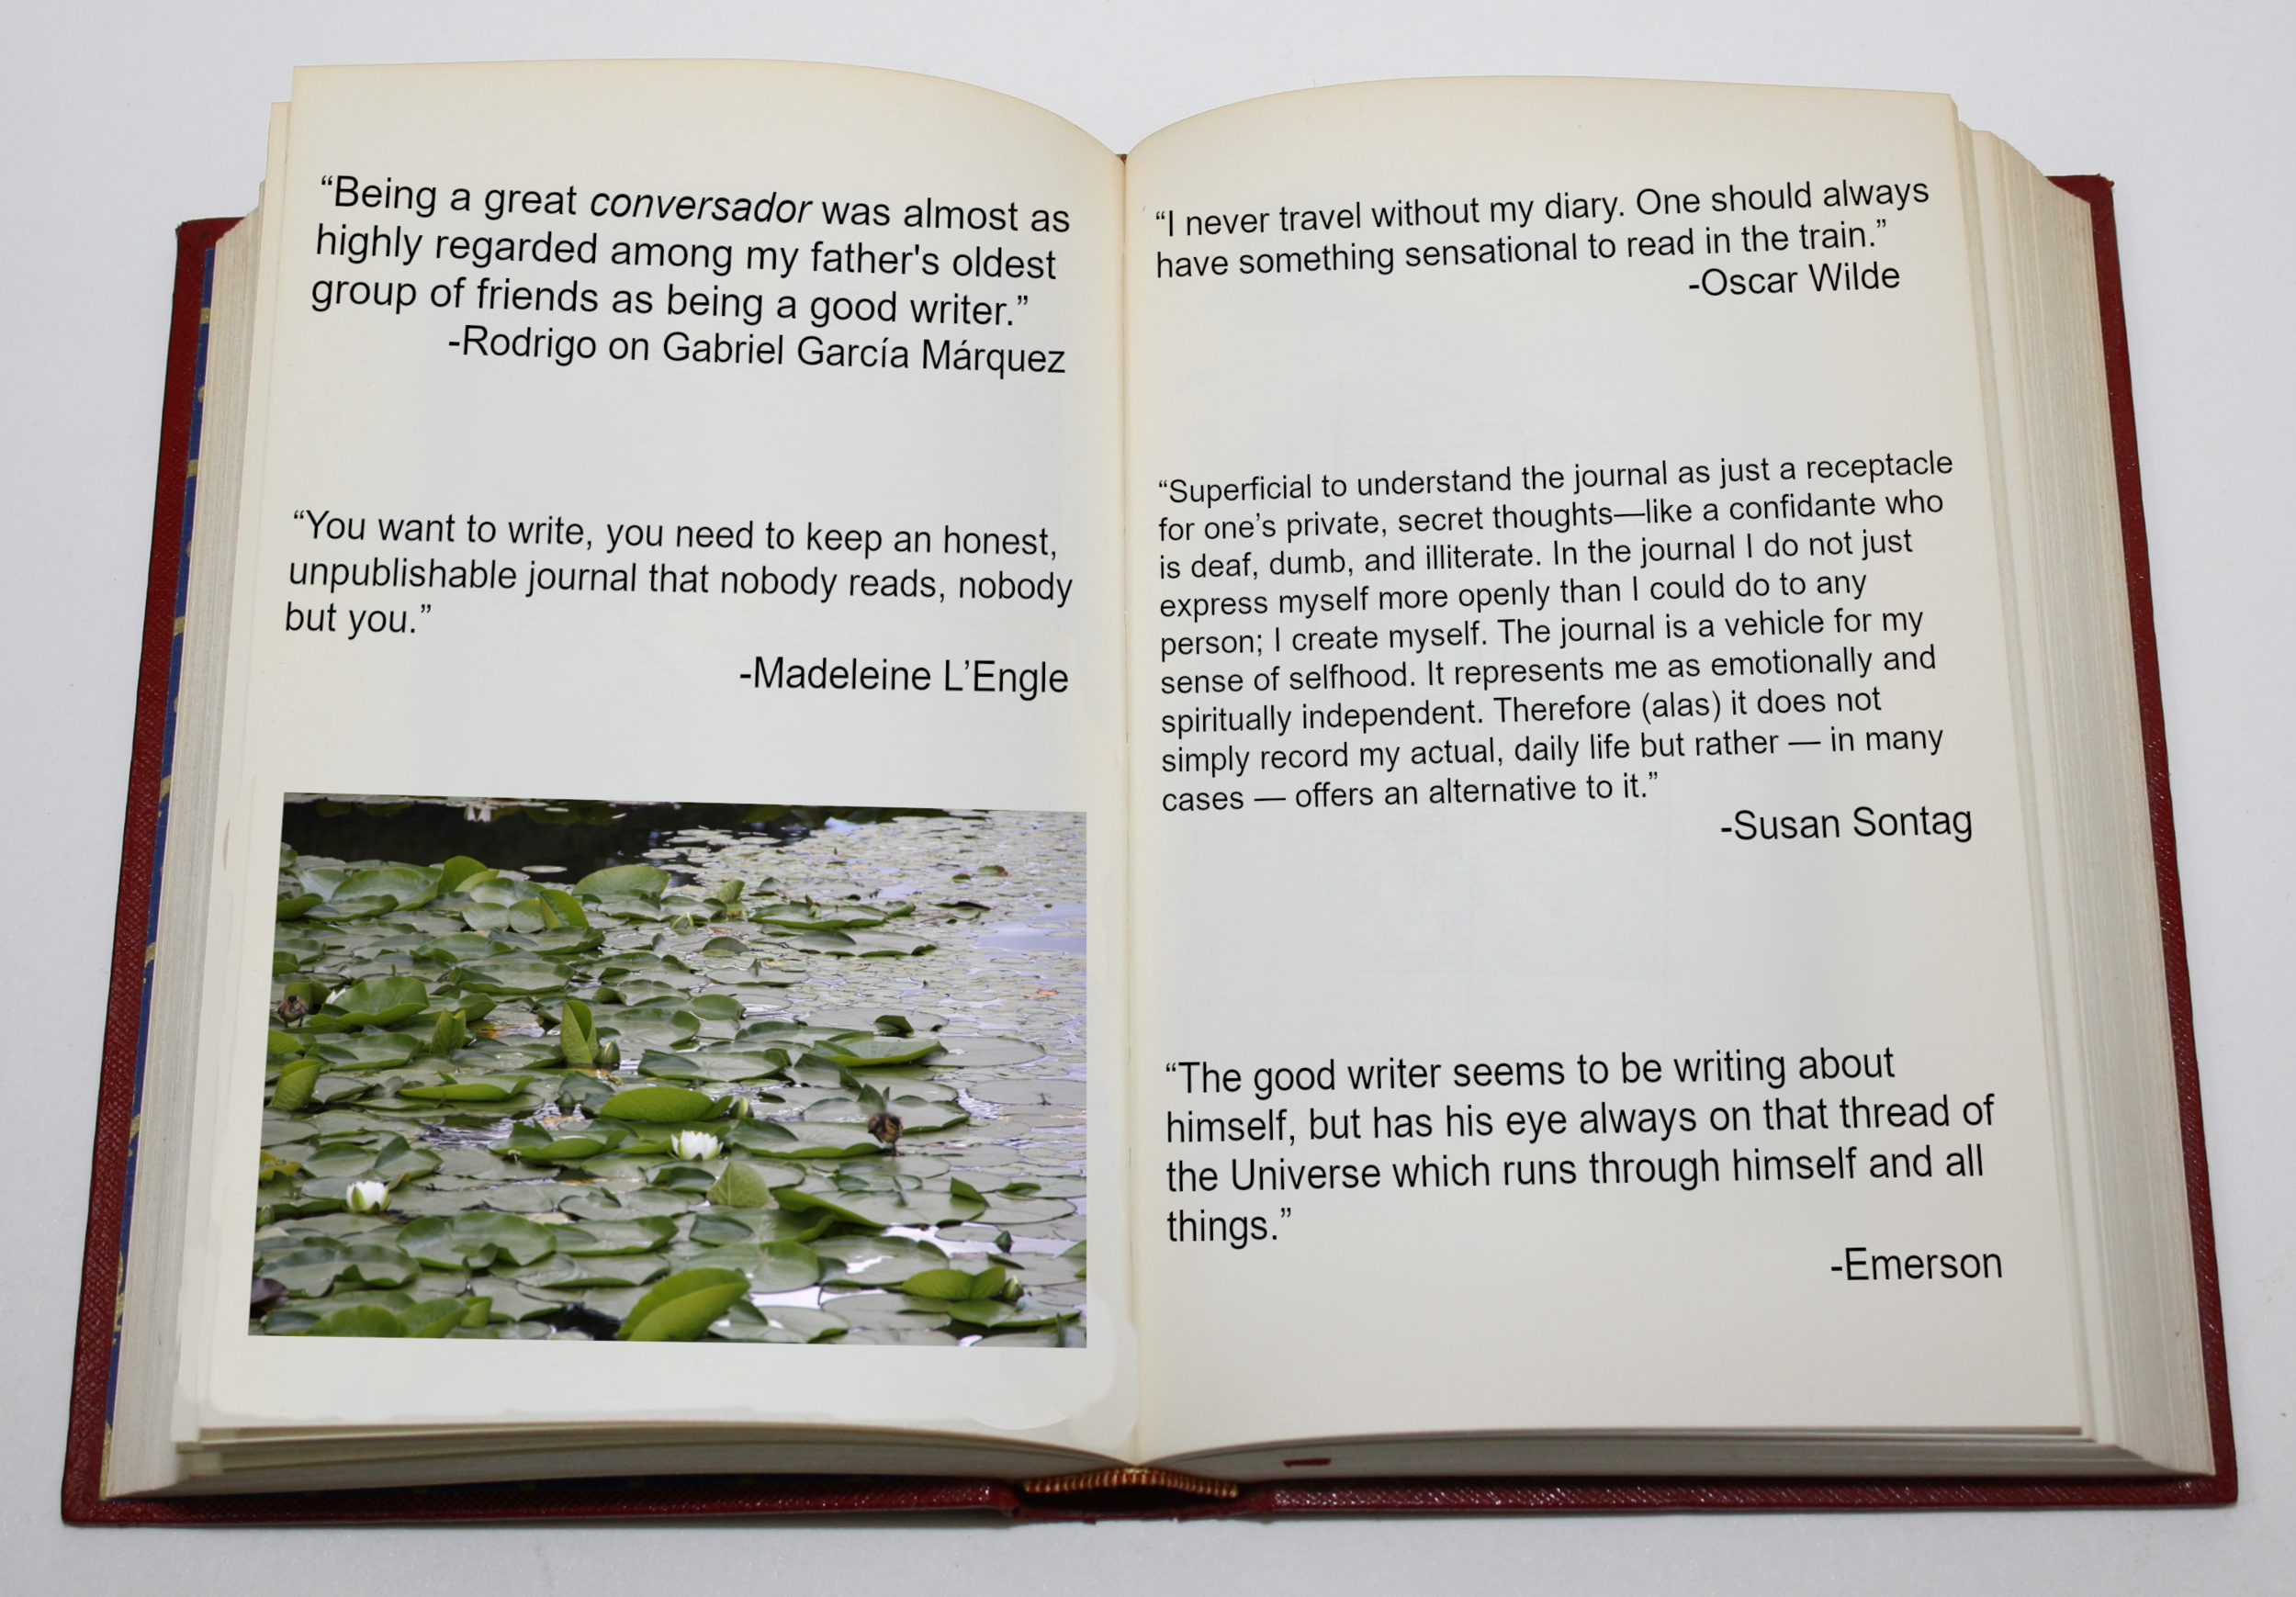 “Being a great conversador was almost as
highly regarded among my father's oldest
group of friends as being a good writer.”
-Rodrigo on Gabriel García Márquez
“You want to write, you need to keep an honest,
unpublishable journal that nobody reads, nobody
but you.”
-Madeleine L’Engle
“I never travel without my diary. One should always
have something sensational to read in the train.”
-Oscar Wilde
“Superficial to understand the journal as just a receptacle
for one’s private, secret thoughts—like a confidante who
is deaf, dumb, and illiterate. In the journal I do not just
express myself more openly than I could do to any
person; I create myself. The journal is a vehicle for my
sense of selfhood. It represents me as emotionally and
spiritually independent. Therefore (alas) it does not
simply record my actual, daily life but rather — in many
cases — offers an alternative to it.”
-Susan Sontag
“The good writer seems to be writing about
himself, but has his eye always on that thread of
the Universe which runs through himself and all
things.”
-Emerson